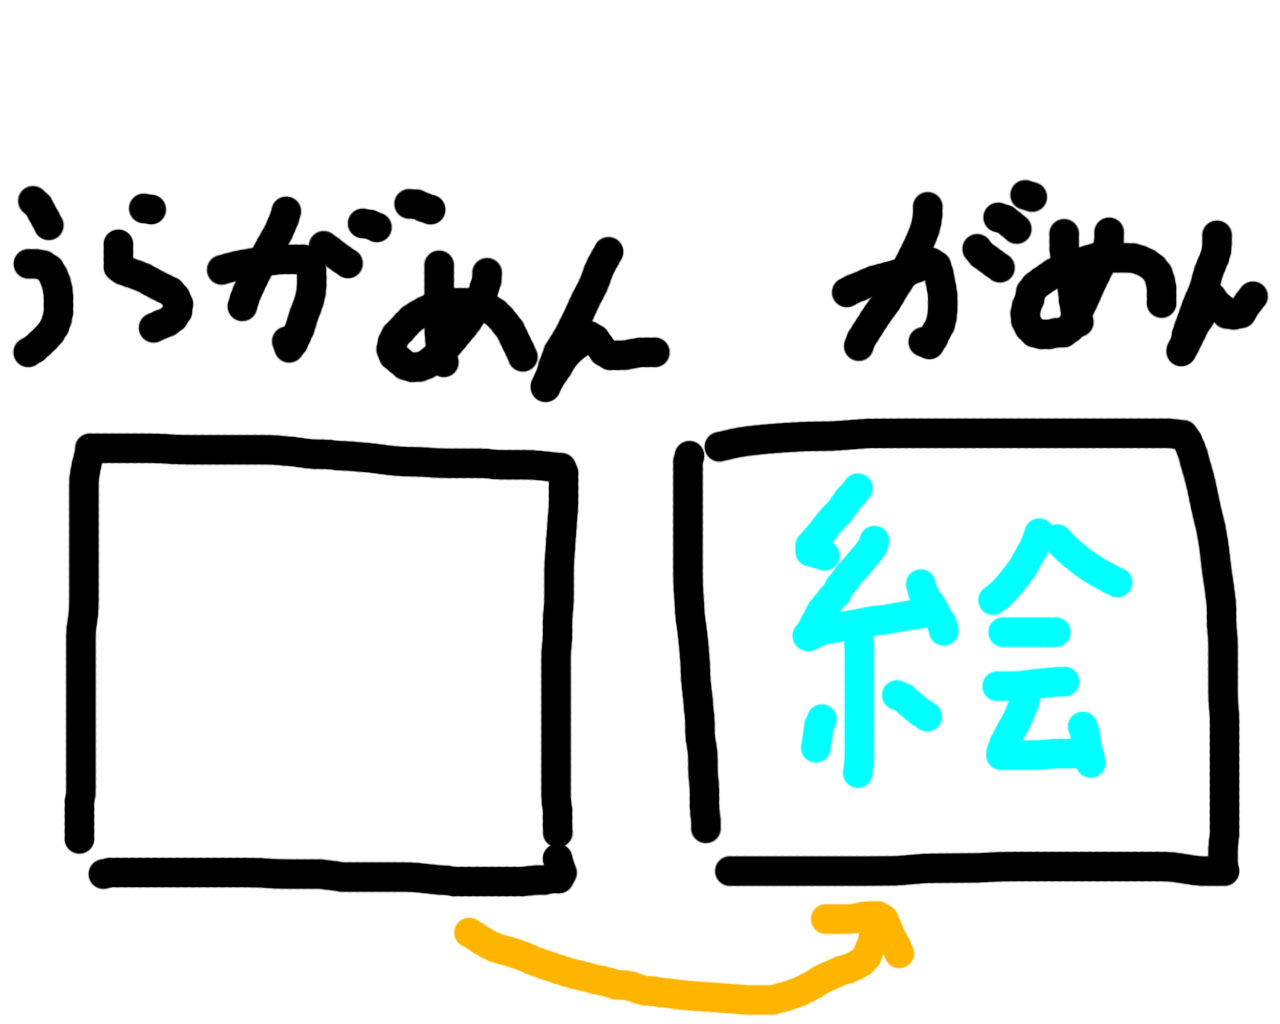 うらがめん
がめん
絵